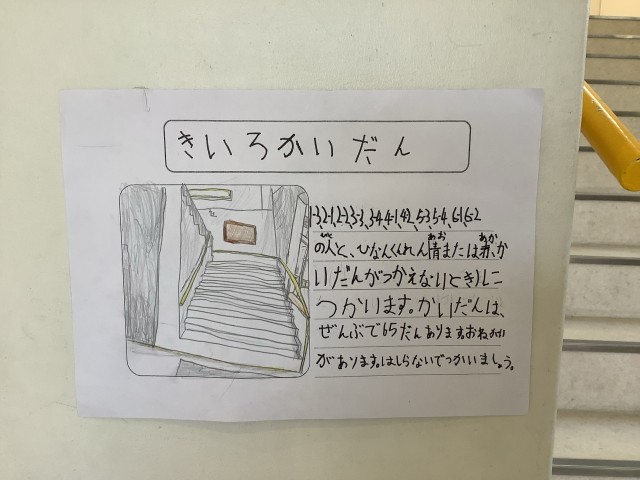 きいろかいだん
1-3,2-1,2-2,3-3,3-4,4-1,4-2,5-3,5-4,6-1,6-2
の人と、ひなんくんれん(青または赤、か
いだんがつかえないとき)に
つかいます。かいだんは、
ぜんぶで65だんあります。おねがい
があります。はしらないでつかいましょう。